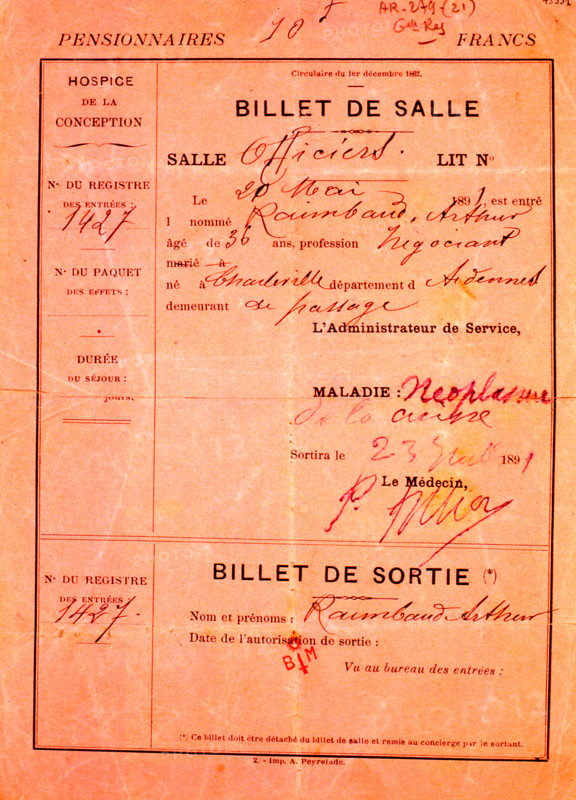 AR-279 (21)
Gdes Res
PENSIONNAIRES 10 f FRANCS
Circulaire du 1er décembre 1862.
HOSPICE
DE LA
CONCEPTION
BILLET DE SALLE
SALLE Officiers. LIT No
No DU REGISTRE
DES ENTRÉES :
1427
Le 20 Mai 1891, est entré
l nommé Raimbaud, Arthur
âgé de 36 ans, profession Négociant
marié à
né à Charleville département d Ardennes
demeurant de passage
L'Administrateur de Service,
No DU PAQUET
DES EFFETS :
DURÉE
DU SÉJOUR :
jours.
MALADIE : Neoplasme
de la cuisse
Sortira le 23 Juillet 1891
Le Médecin,
No DU REGISTRE
DES ENTRÉES :
1427.
BILLET DE SORTIE (*)
Nom et prénoms : Raimbaud Arthur
Date de l'autorisation de sortie :
BM
Vu au bureau des entrées :
(*) Ce billet doit être détaché du billet de salle et remis au concierge par le sortant.
2. - Imp. A. Peyrelade.